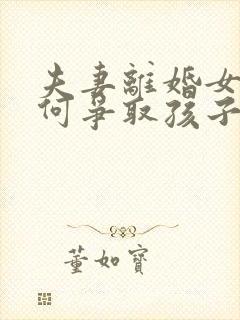 夫妻離婚女
何爭取孩子
董如寶